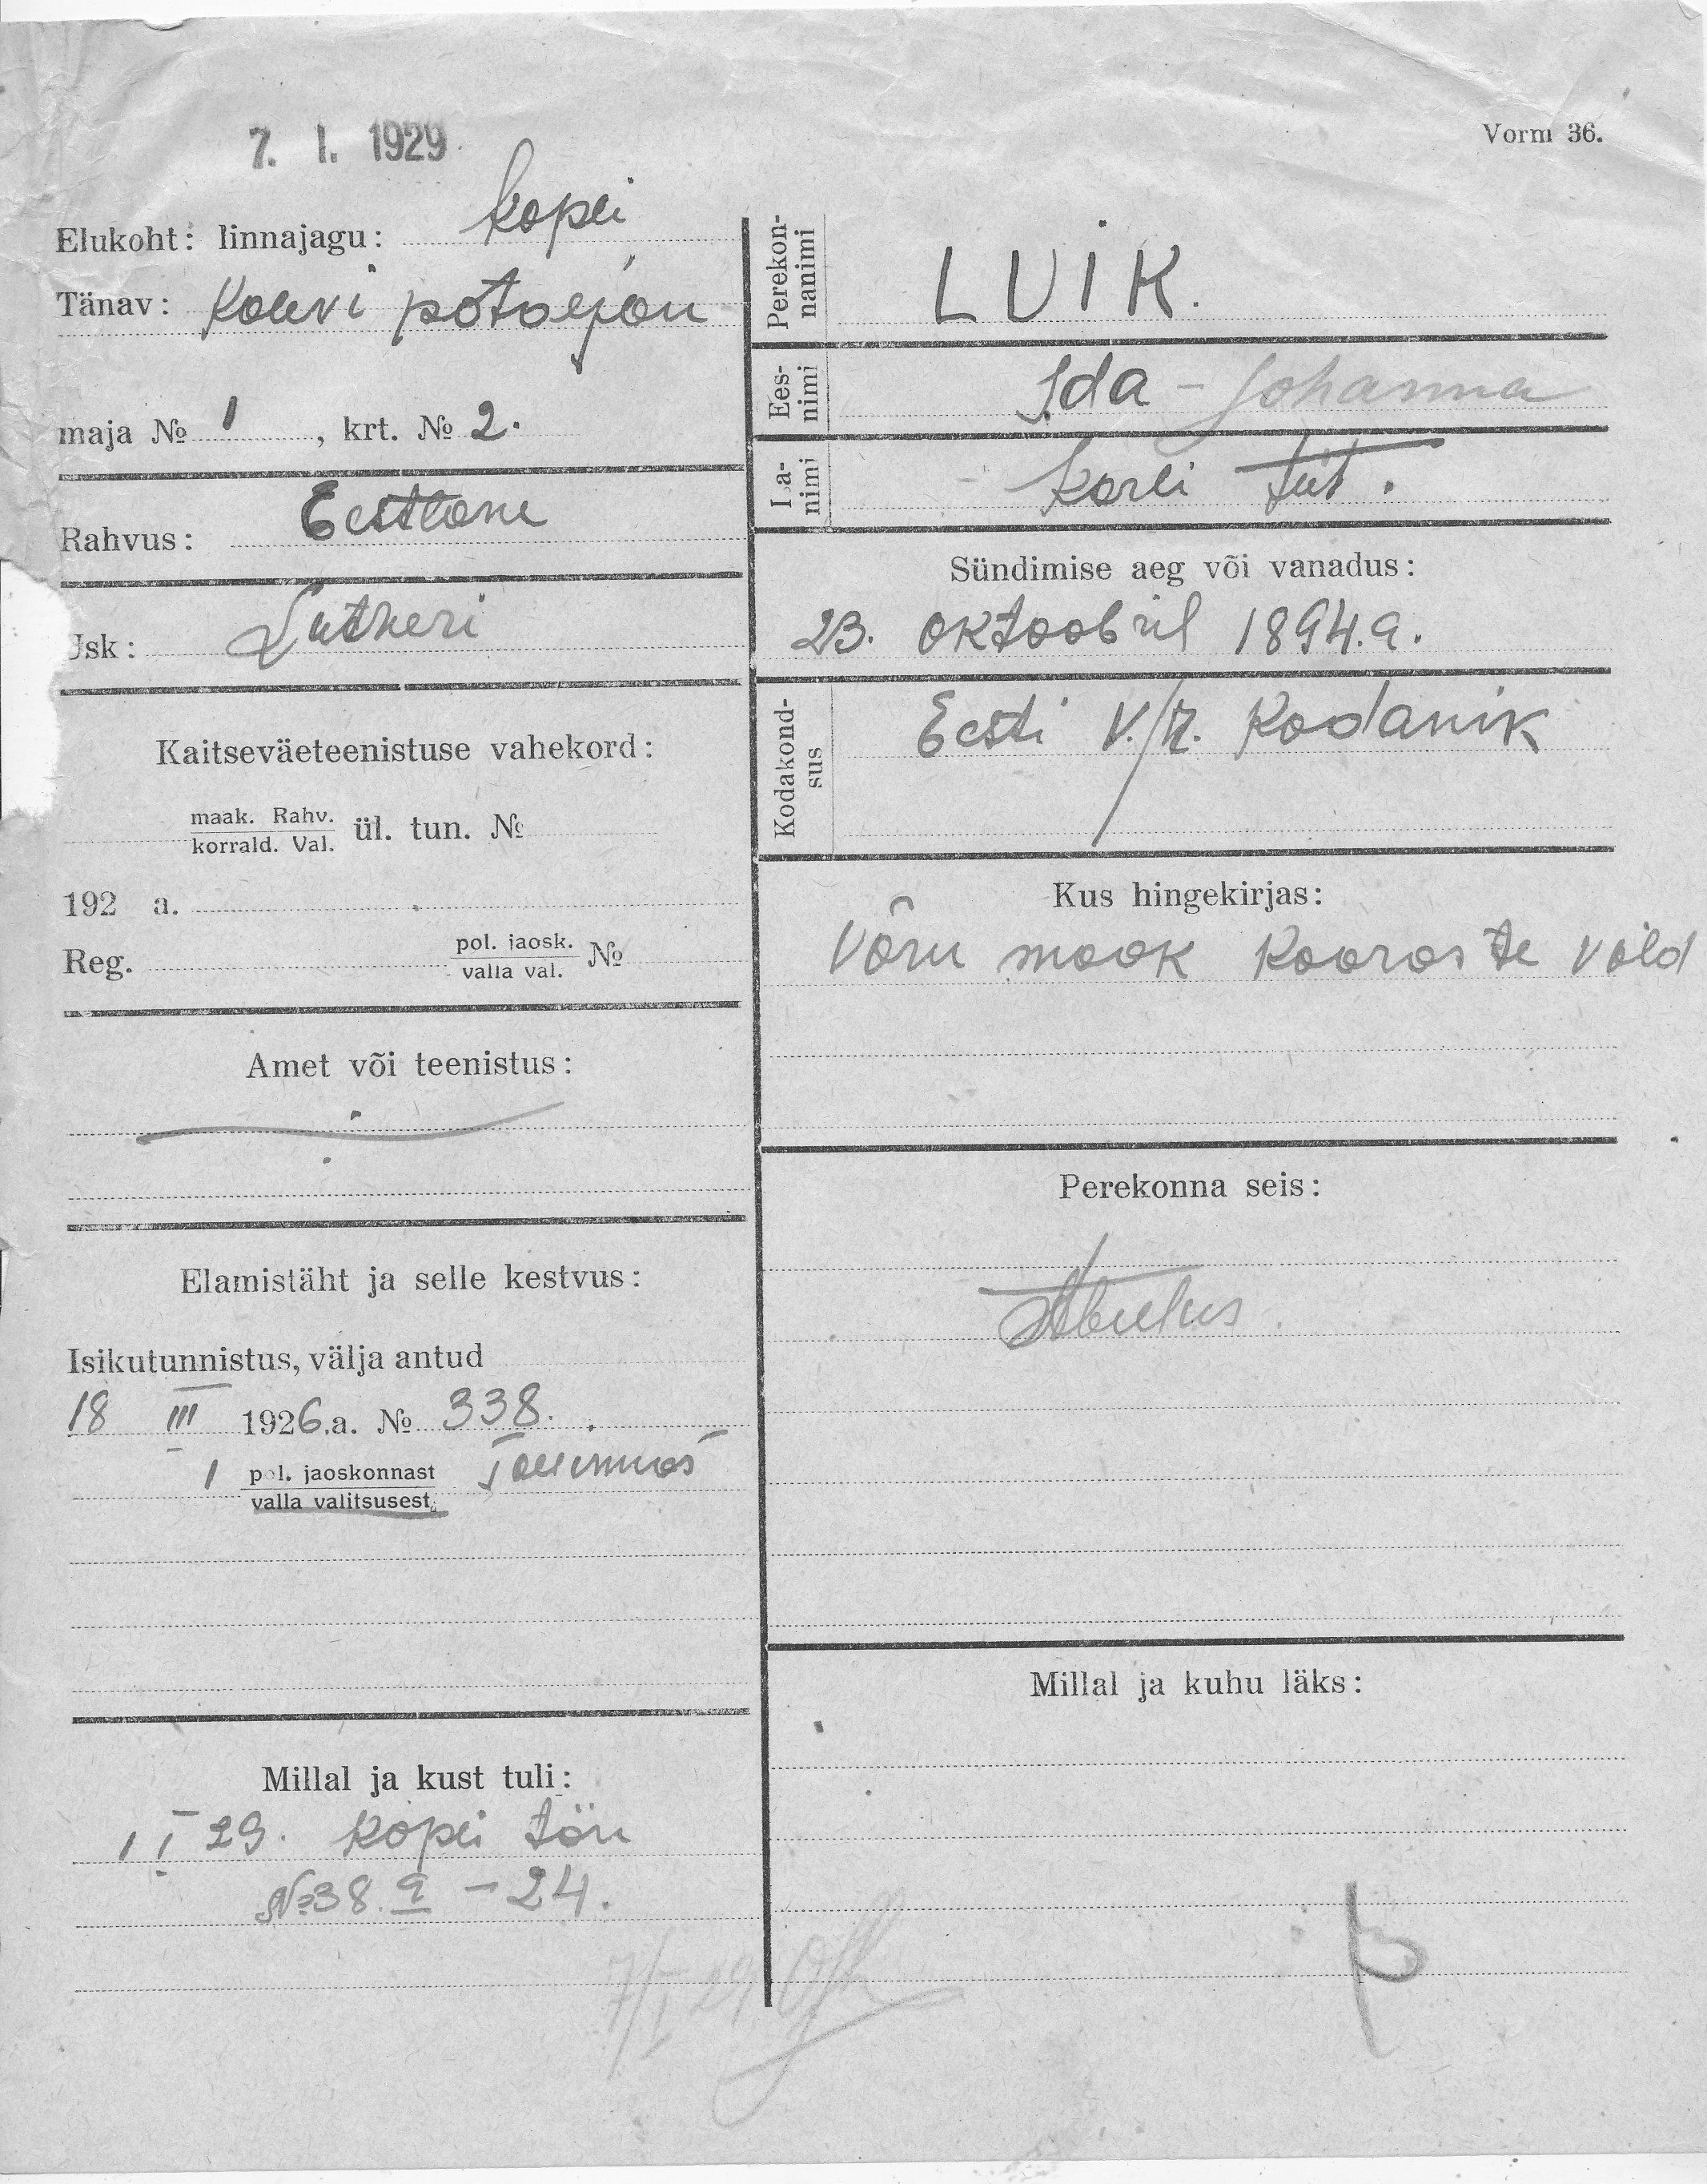 7. I. 1929
Vorm 36.
Elukoht: linnajagu: Kopli
Tänav: Kalevi
maja № 1, krt. № 2.
Rahvus: Eestlane
Usk: Lutheri
Kaitseväeteenistuse vahekord:
maak. Rahv.
korrald. Val.
ül. tun. №
192 a.
Reg. pol. jaosk.
valla val. №
Amet või teenistus:
Elamistäht ja selle kestvus:
Isikutunnistus, välja antud
18 III 1926.a. № 338.
I pol. jaoskonnast
valla valitsusest
Millal ja kust tuli:
1 I 29. Kopli tän
№ 38.a - 24.
7/I 29
Perekon-
nanimi
LUIK.
Ees-
nimi
Ida - Johanna
Isa-
nimi
Karli tüt.
Sündimise aeg või vanadus:
23. oktoobril 1894.a.
Kodakond-
sus
Eesti V./R. Kodanik
Kus hingekirjas:
Võru maak Kooraste vald
Perekonna seis:
Abielus
Millal ja kuhu läks: